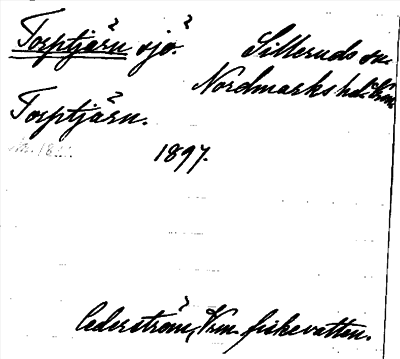 Torptjärn sjö. Silleruds sn.
Nordmarks hd. Vrm.
Torptjärn.
1897.
Cederström, Vrm. fiskevatten.